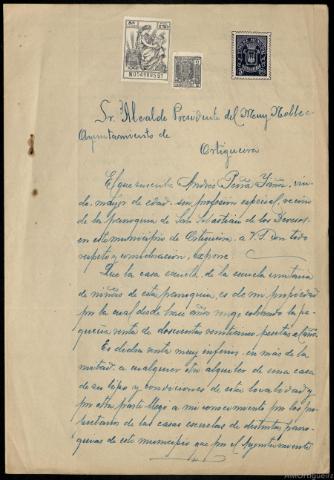 Sr. Alcalde Presidente del Muy Noble
Ayuntamiento de
Ortigueira
El que suscribe Andrés Peña
mayor de edad, sin profesion especial, vecino
de la parroquia de San de los
en este municipio de Ortigueira, a V.S. con todo
respeto y consideracion, expone
Que la casa escuela de la escuela unitaria
de niñas de esta parroquia, es de mi propiedad
por la cual desde hace años vengo cobrando la pe-
queña renta de doscientas pesetas
Es dicha renta muy inferior, en más de la
mitad, a cualquier otro alquiler de una casa
de su tipo y condiciones de esta localidad y
por otra parte llega a mi conocimiento por los pro-
pietarios de las casas escuelas de distintas parro-
quias de este municipio que por el Ayuntamiento